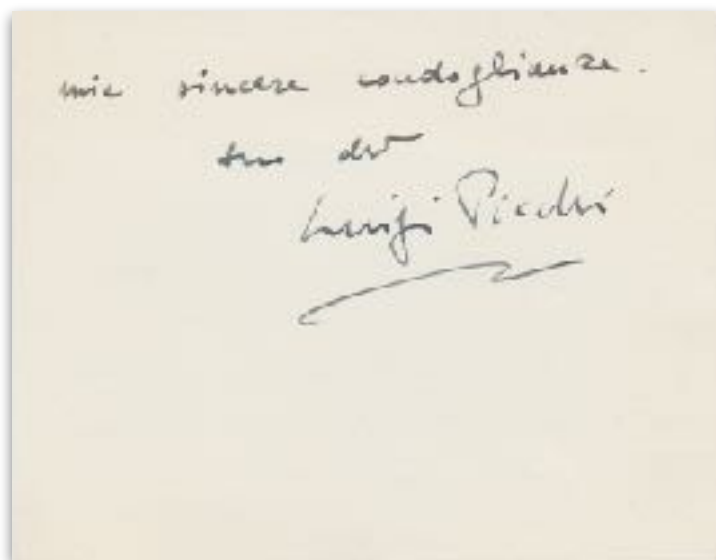 mie sincere condoglianze.
suo dev
Luigi Picchi